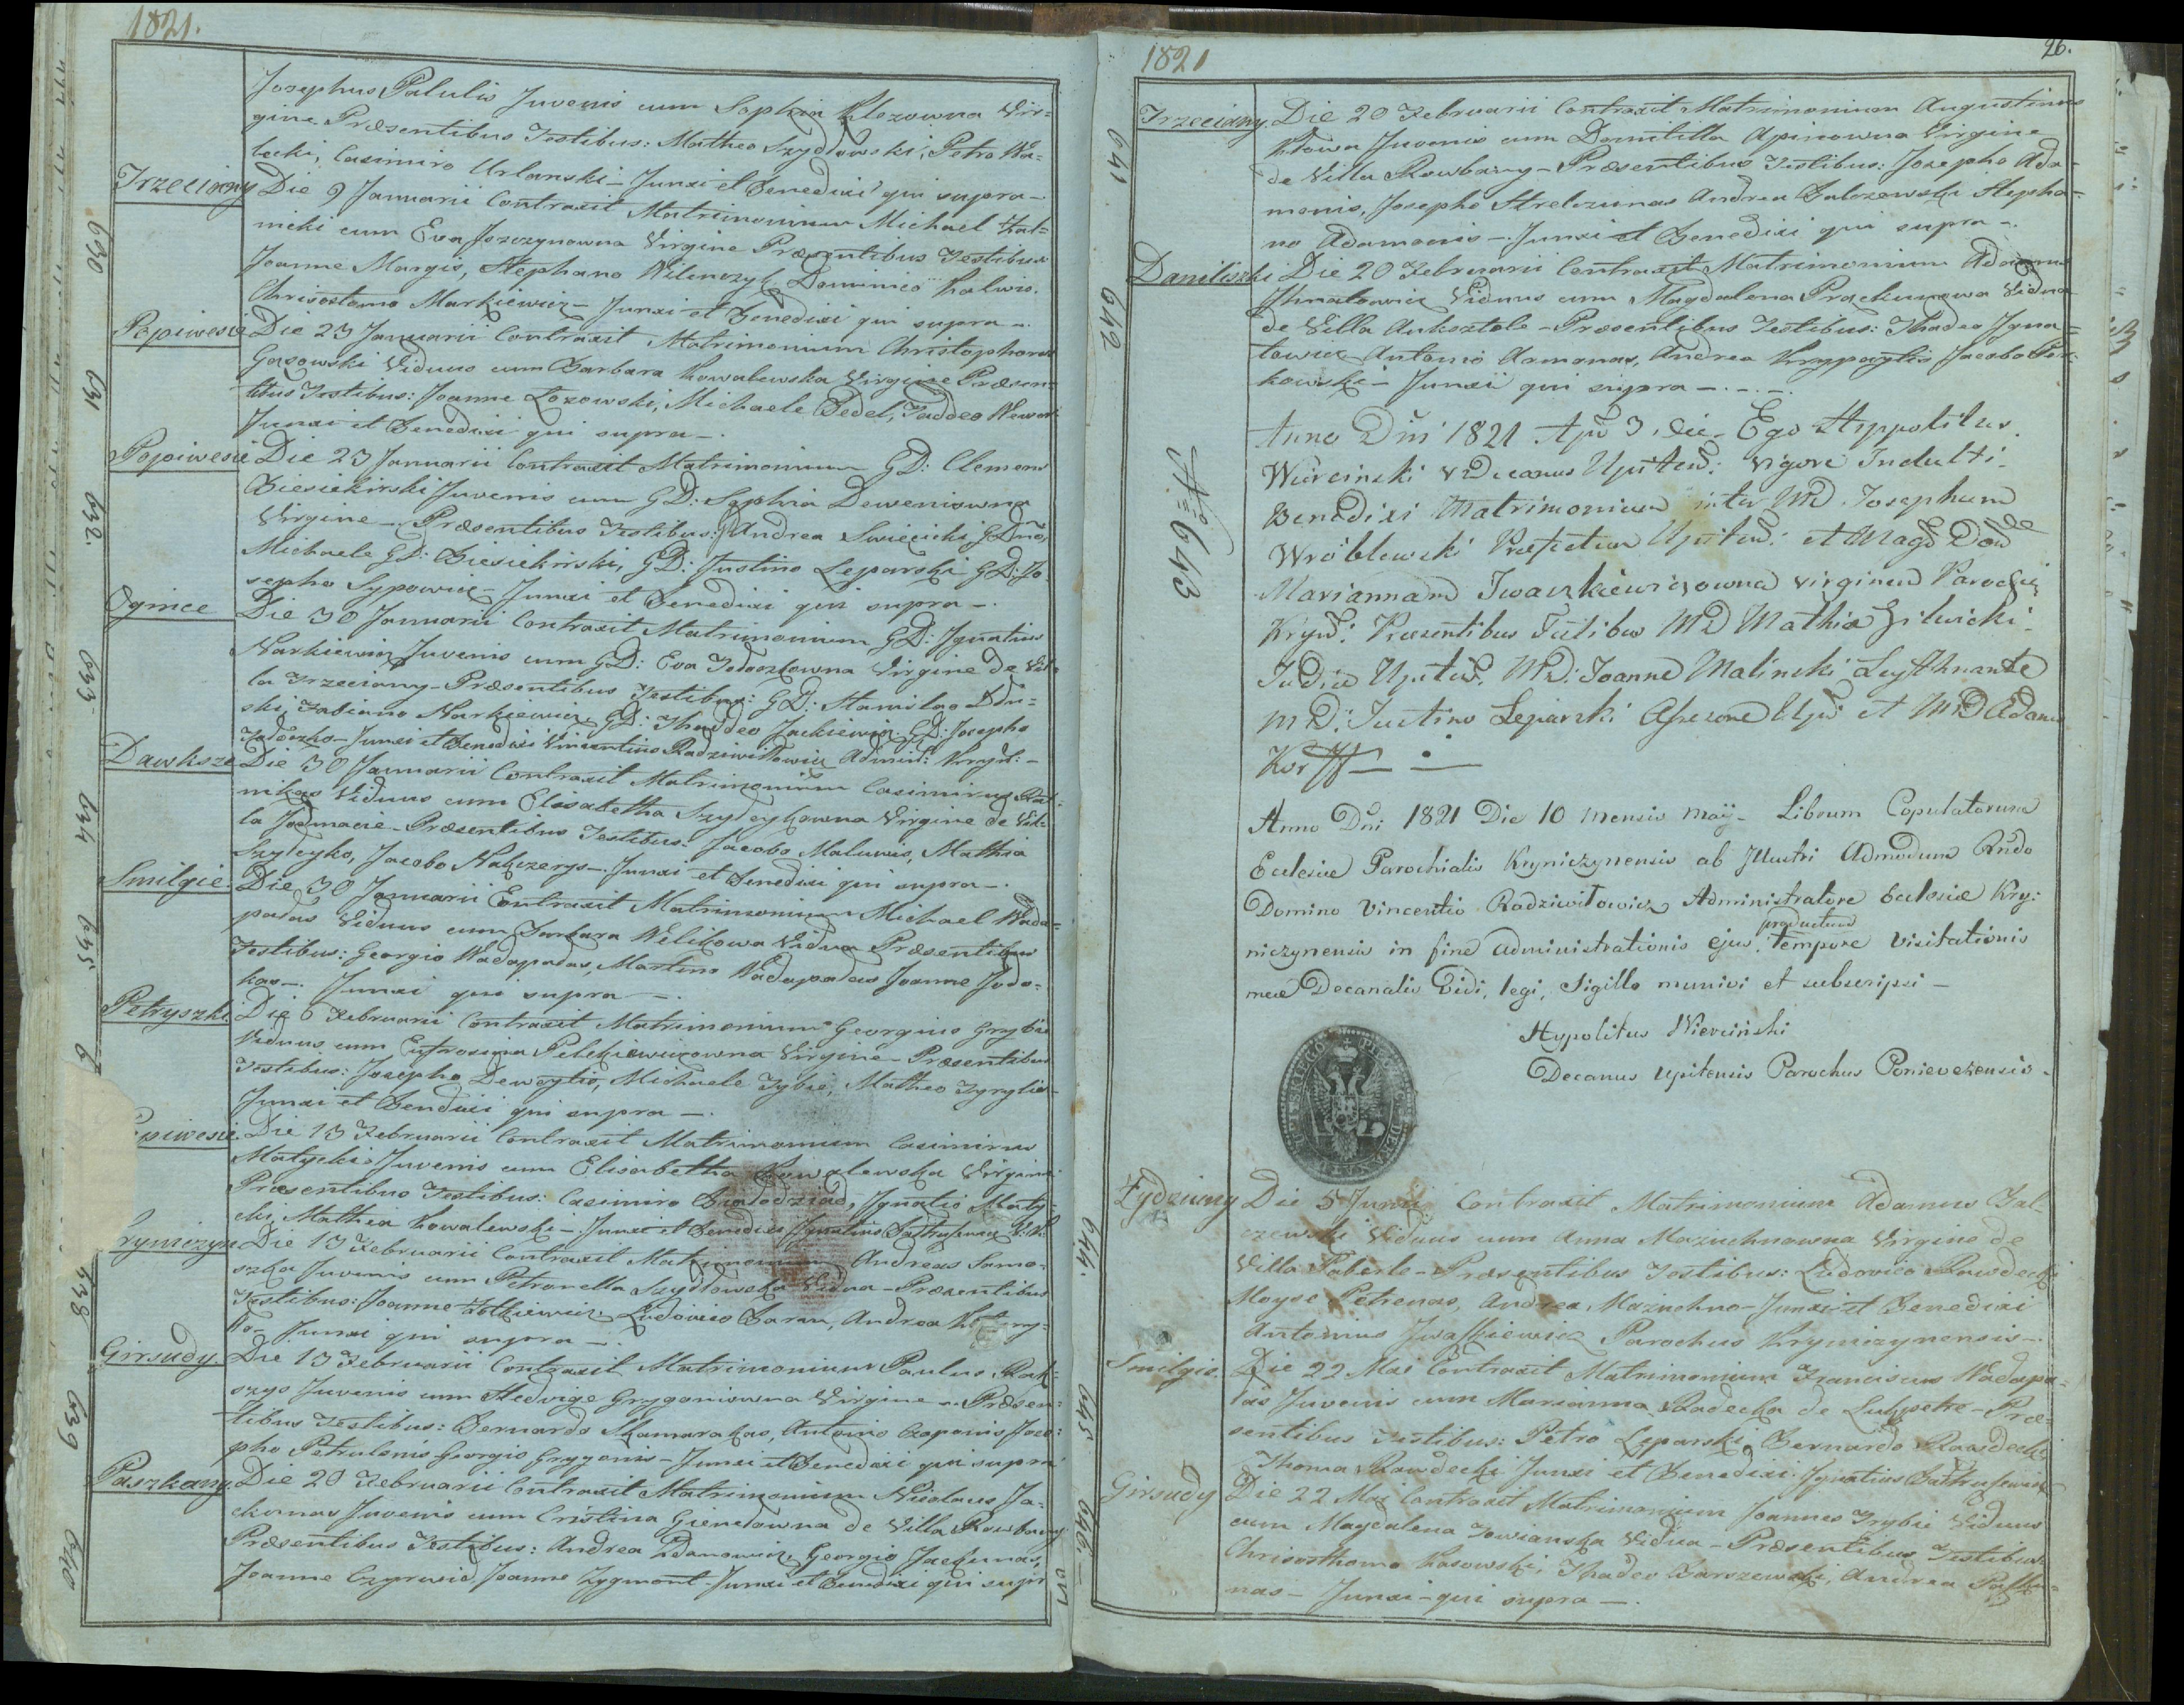 1821.
Josephus Palulis Juvenis cum Sophia Klezowna Vir=
gine Præsentibus Testibus: Matheo Szydłowski, Petro Wa=
lecki, Casimiro Urlanski – Junxi et Benedixi qui supra –
630
Trzeciany Die 9 Januarii Contraxit Matrimonium Michael
nicki cum Eva Jozezynowna Virgine Præsentibus Testibus
Joanne Margis, Stephano Wilenczyk, Dominico Kalwis.
Chrisostomo Markiewicz – Junxi et Benedixi qui supra –
631
Popiwesie Die 23 Januarii Contraxit Matrimonium Christophorus
Gasowski Viduus cum Barbara Kowalewska Virgine Præsen=
tibus Testibus: Joanne Łozowski, Michaele Bedel, Taddeo
Junxi et Benedixi qui supra –.
632.
Popiwesie Die 23 Januarii Contraxit Matrimonium GD: Clemens
Biesiekirski Juvenis cum GD: Sophia Deweniowna
Virgine – Præsentibus Testibus: Andrea Swiecicki GDño,
Michaele GD: Biesiekirski, GD: Justino Leparski GD: Jo
sepho Sypowicz – Junxi et Benedixi qui supra –.
633
Ogince Die 30 Januarii Contraxit Matrimonium GD: Ignatius
Narkiewicz Juvenis cum GD: Eva Jodoczkowna Virgine de Vil
la Trzeciany – Præsentibus Testibus: GD: Stanislao
ski, Fabiano Narkiewicz GD: Thaddeo Jackiewicz GD: Josepho
Jadoczko – Junxi et Benedixi Vincentius Radziwiłowicz Admin: Kryn: –
634
Dawksze Die 30 Januarii Contraxit Matrimonium Casimirus
nikas Viduus cum Elisabetha Szyleykowna Virgine de Vil
la Jodmacie – Præsentibus Testibus: Jacobo Maluwis, Mathia
Szyleyko, Jacobo Nakczerys –. Junxi et Benedixi qui supra –.
635
Smilgie. Die 30 Januarii Contraxit Matrimonium Michael Wada=
padas Viduus cum Barbara Welikowa Vidua Præsentibus
Testibus: Georgio Wadapadas, Martino Wadapadas Joanne Jodo=
kas –. Junxi qui supra –.
6
Petryszki. Die 6 Februarii Contraxit Matrimonium Georgius Grybie
Viduus cum Eufrosina Pelekiewiczowna Virgine – Præsentibus
Testibus: Josepho Deweytis, Michaele Tybie, Matheo Zyrglis
Junxi et Bendixi qui supra –.
piwesie. Die 13 Februarii Contraxit Matrimonium Casimirus
Matycki Juvenis cum Elisabetha Kowalewska Virgine
Præsentibus Testibus: Casimiro Białodziad, Ignatio Maty=
cki, Mathia Kowalewski –. Junxi et Benedixi Ignatius Bathrusewicz
638
ryniczyn Die 13 Februarii Contraxit Matrimonium Andreas Samo=
szka Juvenis cum Petronella Szydłowska Vidua – Præsentibus
Testibus: Joanne Zołkiewicz, Ludovico Baran, Andrea
ko – Junxi qui supra –.
639
Girsudy Die 13 Februarii Contraxit Matrimonium Paulus
szys Juvenis cum Hedvige Grygoniowna Virgine – Præsen=
tibus Testibus: Bernardo Skamarakas, Antonio Czaponis Jose=
pho Petrulonis Georgio Grygonis – Junxi et Benedixi qui supra
640
Paszkany. Die 20 Februarii Contraxit Matrimonium Nicolaus Ja=
ckunas Juvenis cum Cristina Gienelowna de Villa Rowbany
Præsentibus Testibus: Andrea Adamowicz, Georgio Jackunas,
Joanne Czyrwid, Joanne Zygmont – Junxi et Benedixi qui supr
1821
26.
641
Trzeciany. Die 20 Februarii Contraxit Matrimonium Augustinus
Kłowa Juvenis cum Domitilla Apinowna Virgine
de Villa Rowbany – Præsentibus Testibus: Josepho Ada=
monis, Josepho Strelczunas Andrea Balczewski Stepha=
no Adamonis –. Junxi et Benedixi qui supra –.
642
Daniliszki Die 20 Februarii Contraxit Matrimonium Adamus
Ihnatowicz Viduus cum Magdalena Prackunowa Vidua
de Villa Auksztole – Præsentibus Testibus: Thadeo Igna=
towicz Antonio Armonas, Andrea Krypaytis Jacobo
kowski – Junxi qui supra –.–.–
Nº 643
Anno Dñi 1821 Apr 3. die. Ego Hyppolitus
Wierciński V Decanus Upiten: vigore Indulti
Benedixi Matrimonium inter MD. Josephum
Wróblewski Præfectum Upiten: et Magd Dom
Mariannam Iwaszkiewiczowna virginem Parochiæ
Kryn: Præsentibus Testibus MD Mathia Zilwicki
Judice Upiten. MD: Joanne Malinski
MD: Justino Leparski Assesore Upi et MD Adamo
Korff – . –
Anno Dñi 1821 Die 10 Mensis Maÿ – Librum Copulatorum
Eclesiæ Parochialis Kryniczynensis ab Illustri Admodum Rñdo
Domino Vincentio Radziwiłowicz Administratore Eclesiæ Kry:
niczynensis in fine administrationis ejus productum tempore Visitationis
meæ Decanalis Vidi, legi, Sigillo munivi et subscripsi –
Hypolitus Wierciński
Decanus Upitensis Parochus Ponievezensis.
644.
Zydziuny Die 5 Junii Contraxit Matrimonium Adamus Bal
czewski Viduus cum Anna Mazuchnowna Virgine de
Villa Paberle – Præsentibus Testibus: Ludovico Rawdecki
Moyse Petrenas, Andrea Mazuchno – Junxi et Benedixi
Antonius Iwaszkiewicz Parochus Kryniczynensis –.
645
Smilgis. Die 22 Mai Contraxit Matrimonium Franciscus Wadapa=
las Juvenis cum Marianna Radecka de Lukpetre – Præ=
sentibus Testibus: Petro Leparski, Bernardo Rawdecki
Thoma Rawdecki Junxi et Benedixi Ignatius Bathrusewicz
646.
Girsudy Die 22 Mai Contraxit Matrimonium Joannes Trybie Viduus
cum Magdalena Towianska Vidua – Præsentibus Testibus:
Chrisosthomo Kasowski, Thadeo Barszewski, Andrea
nas – Junxi – qui supra –.